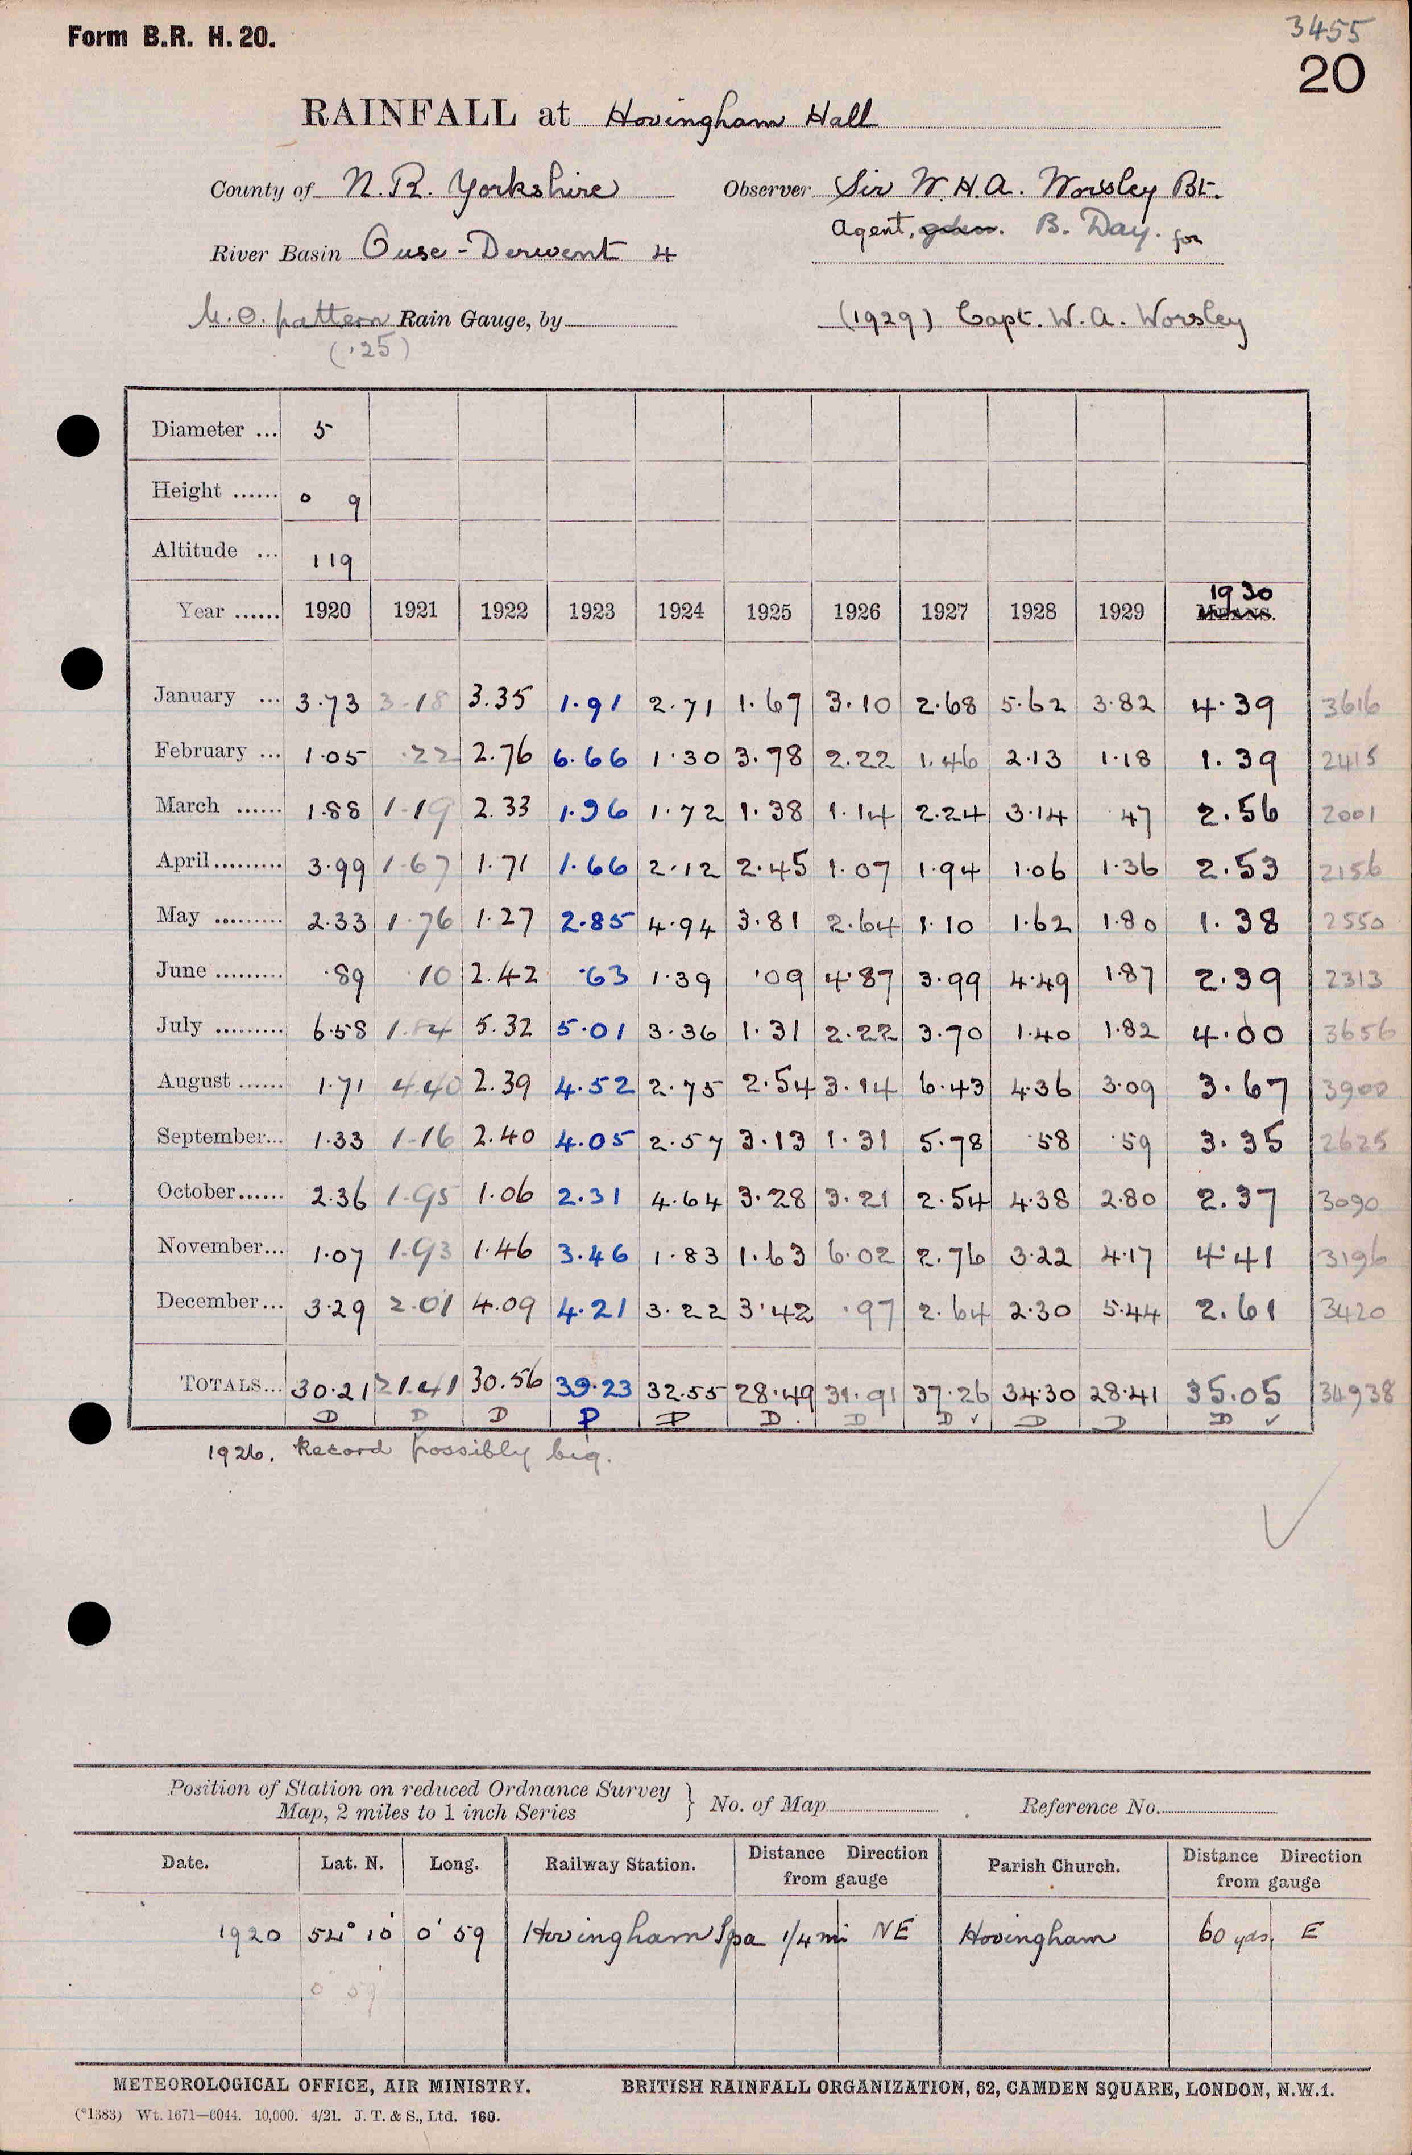 3455
Form B.R. H. 20.
20
RAINFALL at Hovingham Hall
County of N.R. Yorkshire Observer Sir W.H.A. Worsley Bt.
Agent, B. Day. for
River Basin Ouse-Derwent 4
M.O. pattern Rain Gauge, by (1929) Capt. W.A. Worsley
(.25)
Diameter ... 5
Height ...... 0 9
Altitude ... 119
1930
Year ...... 1920 1921 1922 1923 1924 1925 1926 1927 1928 1929 MEANS.
January ... 3.73 3.18 3.35 1.91 2.71 1.67 3.10 2.68 5.62 3.82 4.39 3616
February ... 1.05 .22 2.76 6.66 1.30 3.78 2.22 1.46 2.13 1.18 1.39 2415
March ...... 1.88 1.19 2.33 1.96 1.72 1.38 1.14 2.24 3.14 47 2.56 2001
April ......... 3.99 1.67 1.71 1.66 2.12 2.45 1.07 1.94 1.06 1.36 2.53 2156
May ......... 2.33 1.76 1.27 2.85 4.94 3.81 2.64 1.10 1.62 1.80 1.38 2550
June ......... .89 10 2.42 .63 1.39 .09 4.87 3.99 4.49 1.87 2.39 2313
July ......... 6.58 1.84 5.32 5.01 3.36 1.31 2.22 3.70 1.40 1.82 4.00 3656
August ...... 1.71 4.40 2.39 4.52 2.75 2.54 3.14 6.43 4.36 3.09 3.67 3900
September... 1.33 1.16 2.40 4.05 2.57 3.13 1.31 5.78 .58 .59 3.35 2625
October...... 2.36 1.95 1.06 2.31 4.64 3.28 3.21 2.54 4.38 2.80 2.37 3090
November... 1.07 1.93 1.46 3.46 1.83 1.63 6.02 2.76 3.22 4.17 4.41 3196
December... 3.29 2.01 4.09 4.21 3.22 3.42 .97 2.64 2.30 5.44 2.61 3420
TOTALS... 30.21 21.41 30.56 39.23 32.55 28.49 31.91 37.26 34.30 28.41 35.05 34938
D D D P P D D D ✓ D D D ✓
1926. Record possibly big.
Position of Station on reduced Ordnance Survey
Map, 2 miles to 1 inch Series } No. of Map Reference No.
Date. Lat. N. Long. Railway Station. Distance Direction from gauge Parish Church. Distance Direction from gauge
1920 54° 10' 0° 59 Hovingham Spa 1/4 mi NE Hovingham 60 yds. E
0 59
METEOROLOGICAL OFFICE, AIR MINISTRY. BRITISH RAINFALL ORGANIZATION, 62, CAMDEN SQUARE, LONDON, N.W.1.
(*1383) Wt. 1671—6044. 10,000. 4/21. J. T. & S., Ltd. 160.